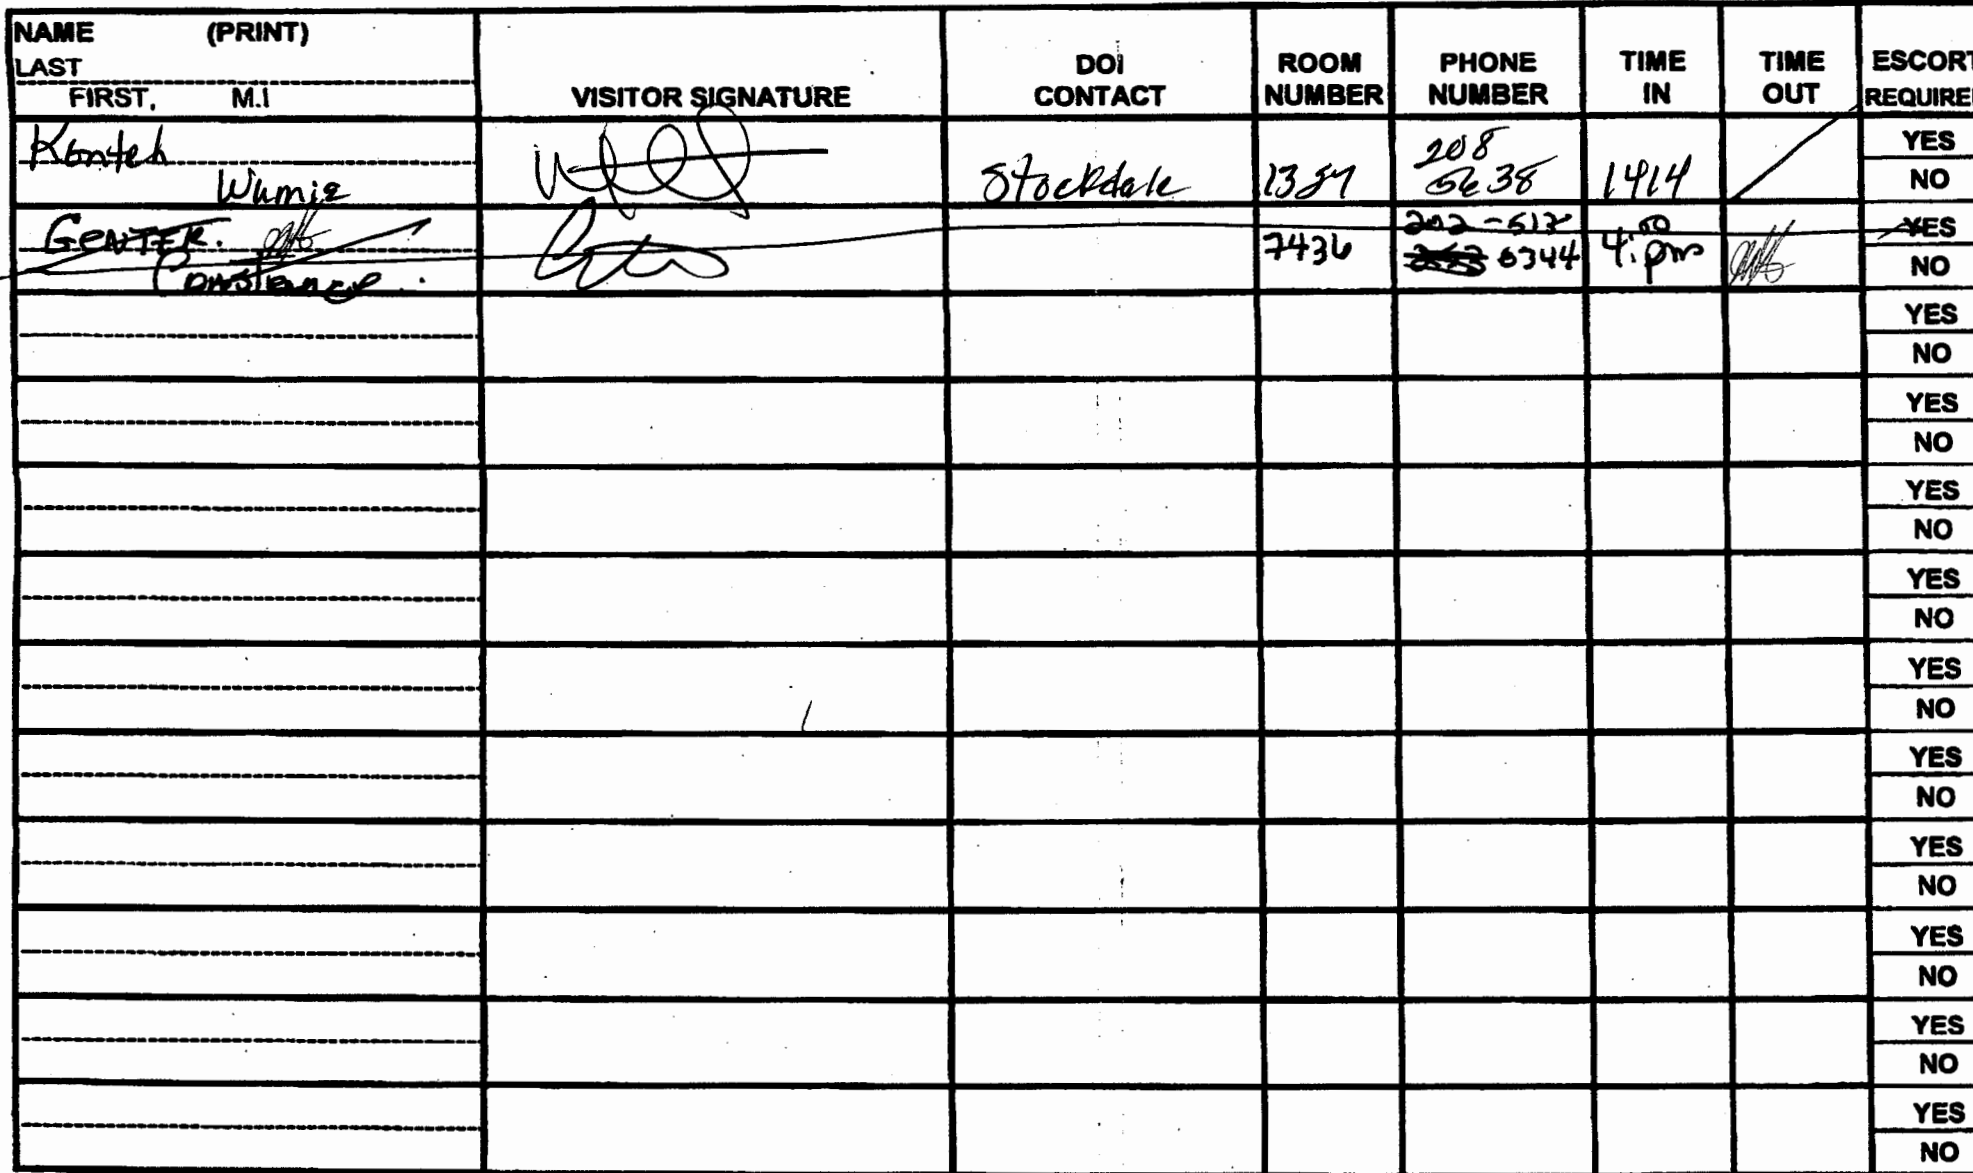 NAME (PRINT)
LAST
FIRST, M.I
VISITOR SIGNATURE
DOI
CONTACT
ROOM
NUMBER
PHONE
NUMBER
TIME
IN
TIME
OUT
ESCORT
REQUIRE
Konteh
Wumie
Stockdale
208
38
1414
YES
NO
GENTER.
Constance
7436
202-513
6344
4:00
pm
YES
NO
YES
NO
YES
NO
YES
NO
YES
NO
YES
NO
YES
NO
YES
NO
YES
NO
YES
NO
YES
NO